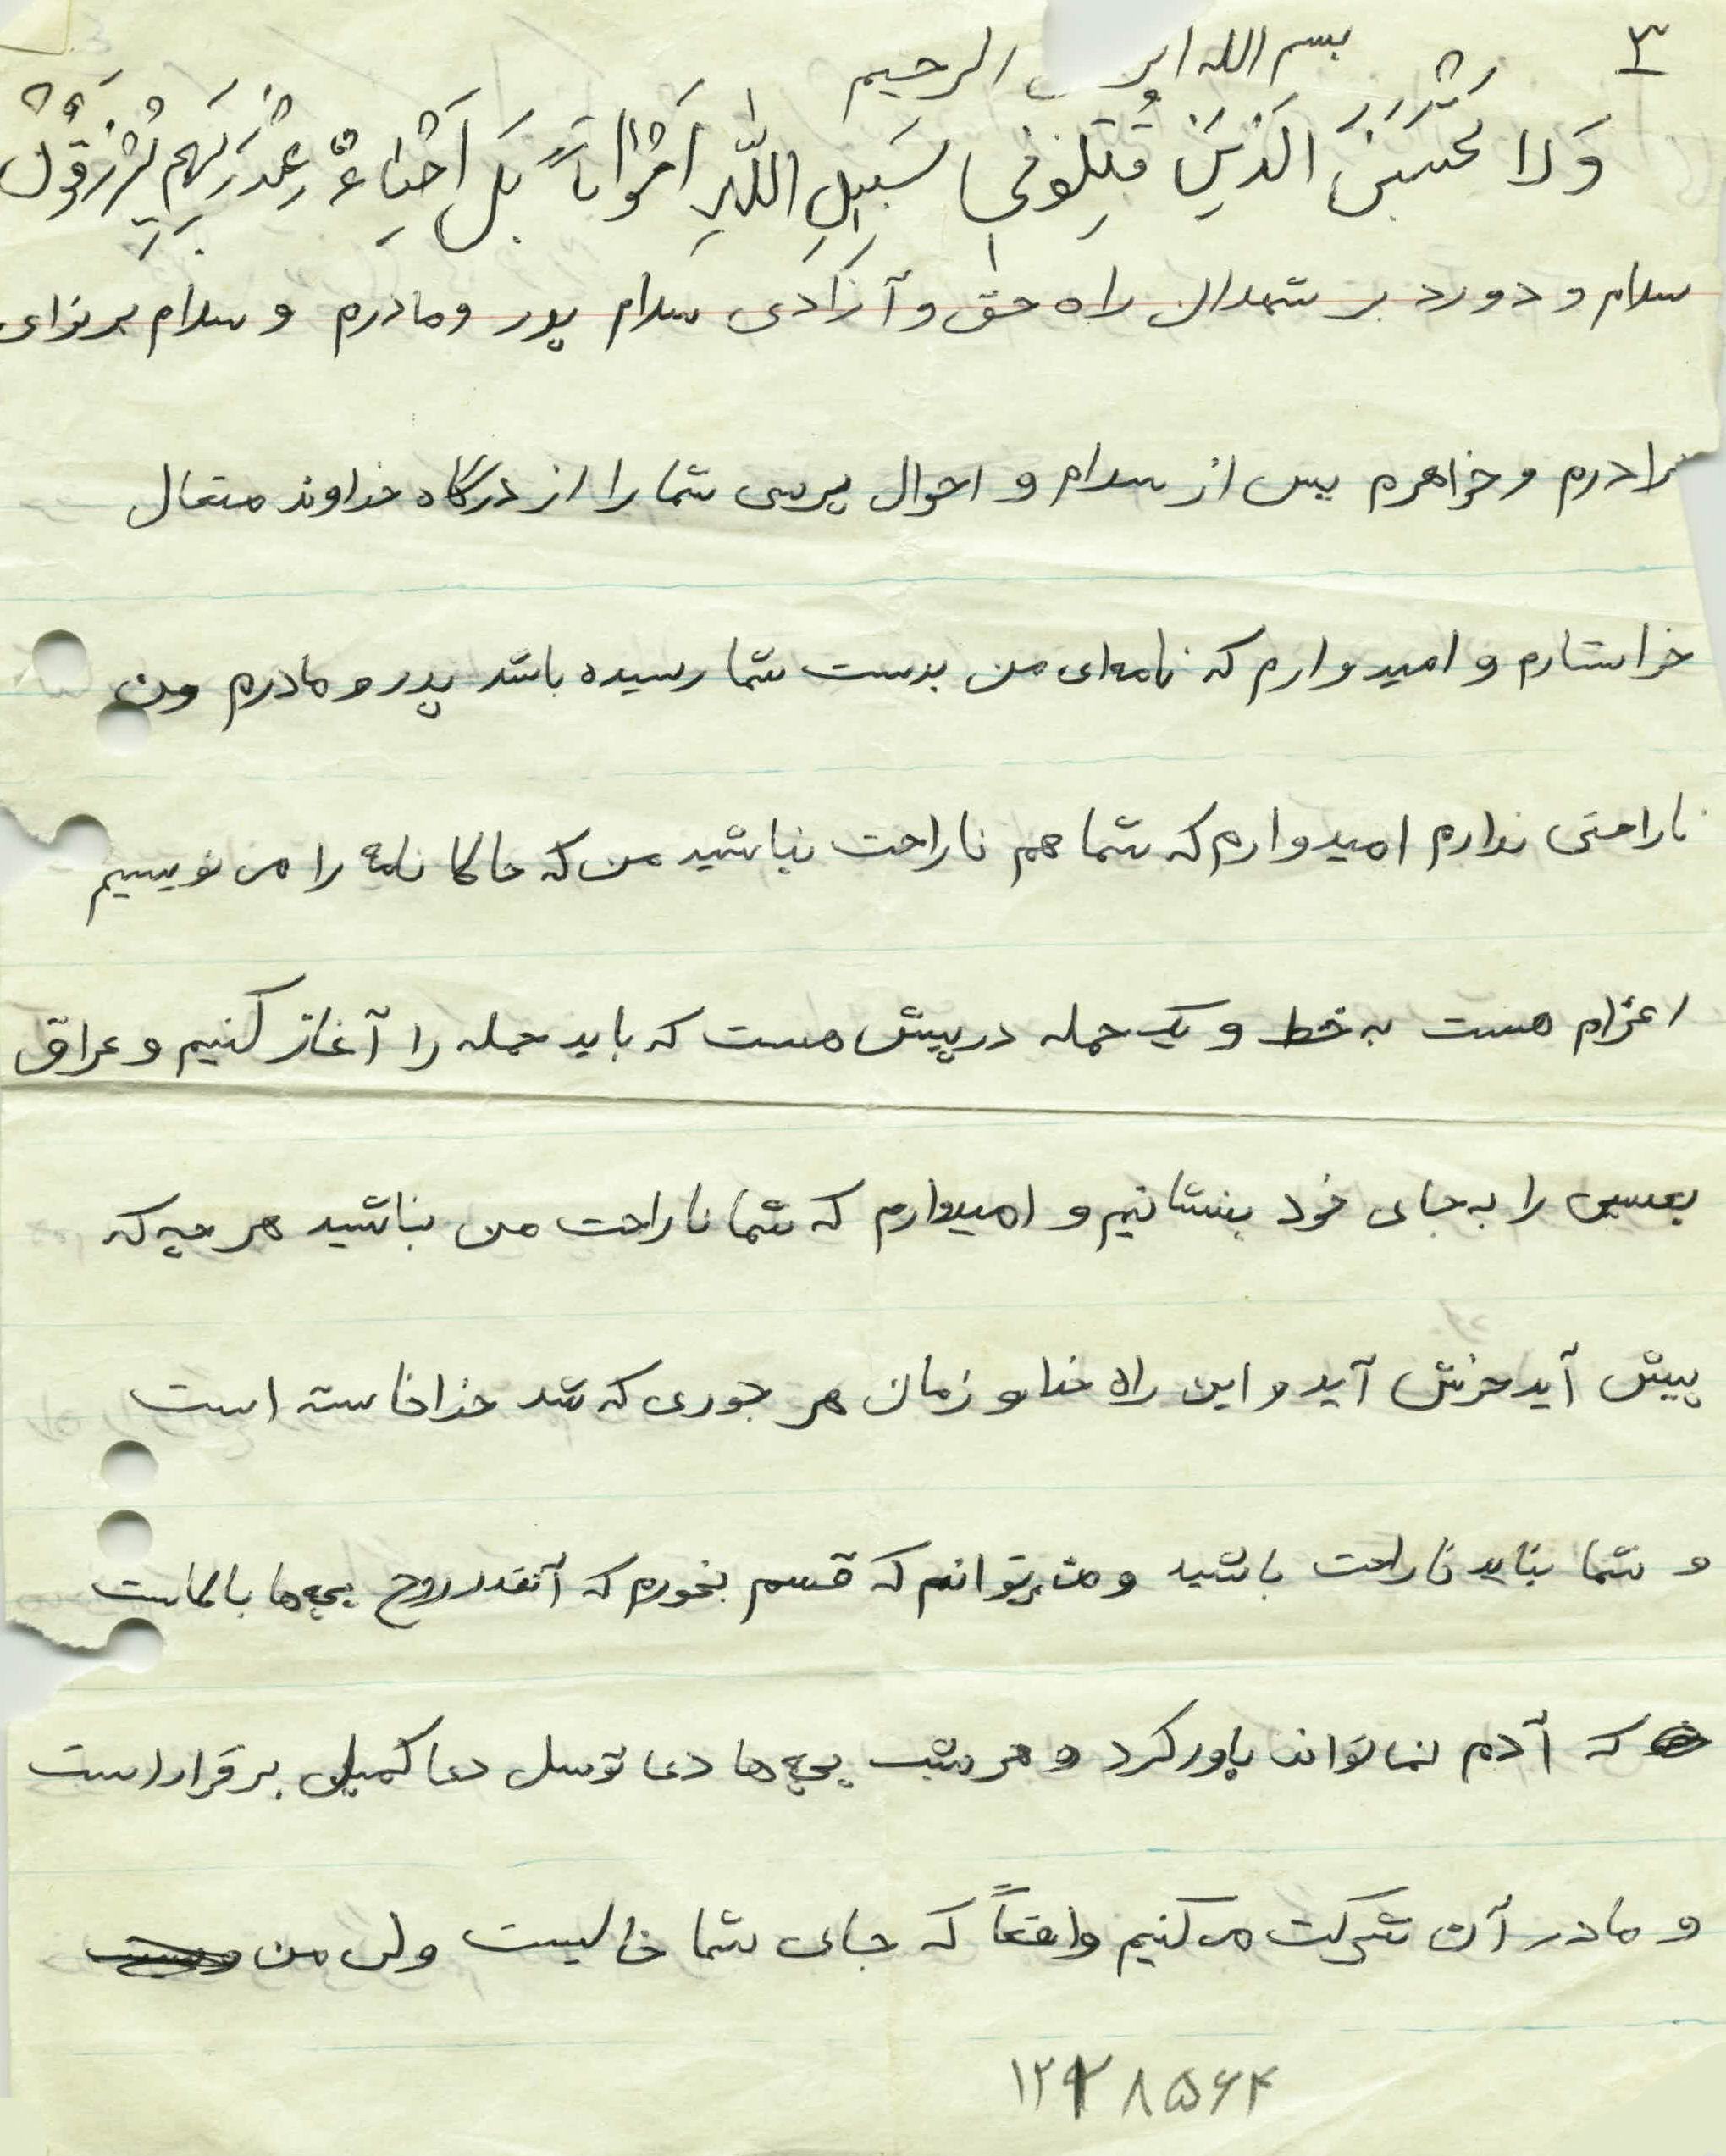 ۳
بسم الله الرحیم
وَلا تَحْسَبَنَّ الَّذینَ قُتِلوفی سَبیلِ اللهِ اَمْواتاً بَل اَحْیاءٌ عِنْدَ رَبِهِم یُرْزَقُونْ
سلام و دورد بر شهدان راه حق و آزادی سلام پدر ومادرم و سلام برتوای
برادرم و خواهرم پس از سلام و احوال پرسی شما را از درگاه خداوند متعال
خواستارم و امیدوارم که نامه‌ای من بدست شما رسیده باشد پدر و مادرم من
ناراحتی ندارم امیدوارم که شما هم ناراحت نباشید من که حالا نامه را می نویسیم
اعزام هست به خط و یک حمله در پیش هست که باید حمله را آغاز کنیم و عراق
بعسی را به جای خود بنشانیم و امیدوارم که شما ناراحت من نباشید هر چه که
پیش آید خوش آید و این راه خدا و زمان هر جوری که شد خدا خاسته است
و شما نباید ناراحت باشید و می‌توانم که قسم بخورم که آنقدر روح بچه‌ها بالااست
که آدم نما تواند باور کرد و هر شب بچه‌ها دعا توسل دعا کمیل برقرار است
و مادر آن شرکت می کنیم واقعاً که جای شما خالیست ولی من
۱۲۲۸۵۶۴